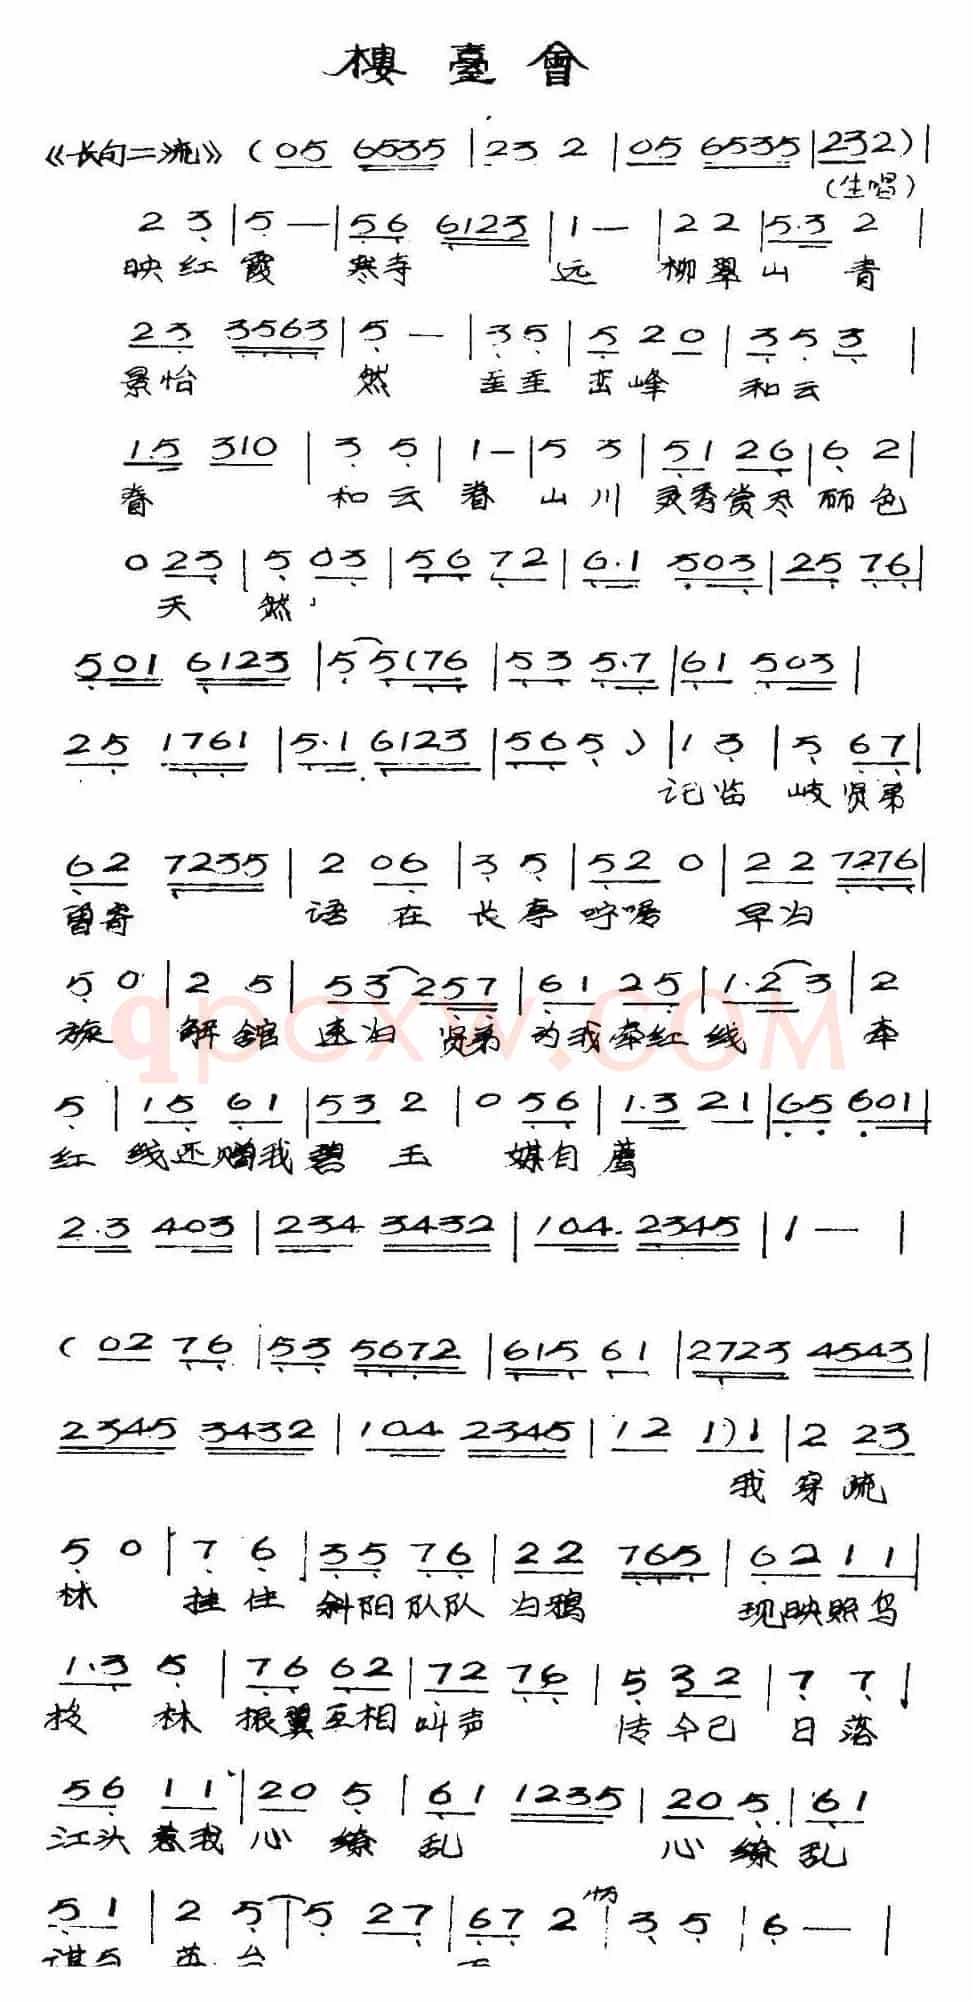 樓臺會
《长句二流》 (05 6535 | 23 2 | 05 6535 | 232) |
(生唱)
2 3 | 5 — | 56 6123 | 1 — | 22 | 5.3 2 |
映红霞 寒寺 远 柳翠山 青
23 3563 | 5 — | 35 | 5 20 | 35 3 |
景怡 然 峰 和云
1.5 310 | 3 5 | 1 — | 5 3 | 51 26 | 6 2 |
眷 和云眷 山川 灵秀赏尽 丽色
0 23 | 5 03 | 56 72 | 6.1 503 | 25 76 |
天 然,
501 6123 | 5 5(76 | 53 5.7 | 61 503 |
25 1761 | 5.1 6123 | 565) | 1 3 | 5 67 |
记临 岐贤弟
62 7235 | 2 06 | 3 5 | 52 0 | 22 7276 |
留寄 语在 长亭 咛嘱 早归
5 0 | 2 5 | 53 257 | 61 25 | 1.2 3 | 2
旋 解馆 速归 贤弟 为我牵红线 牵
qpcxw.com
5 | 15 61 | 53 2 | 0 56 | 1.3 21 | 65 601 |
红 线还赠我碧 玉 媒自 荐
2.3 403 | 234 3432 | 104 2345 | 1 — |
(02 76 | 53 5672 | 615 61 | 2723 4543 |
2345 3432 | 104 2345 | 12 1) 1 | 2 23
我 穿疏
5 0 | 7 6 | 35 76 | 22 765 | 62 11 |
林 挂住 斜阳队队 归鸦 现映照鸟
1.3 5 | 76 62 | 72 76 | 5 32 | 7 7 |
投 林 振翼互相 叫声 传 今已 日落
56 11 | 20 5 | 61 1235 | 20 5 | 61
江头惹我 心 缭 乱 心 缭乱
51 | 2 5 | 5 27 | 67 2 | 3 5 | 6 — |